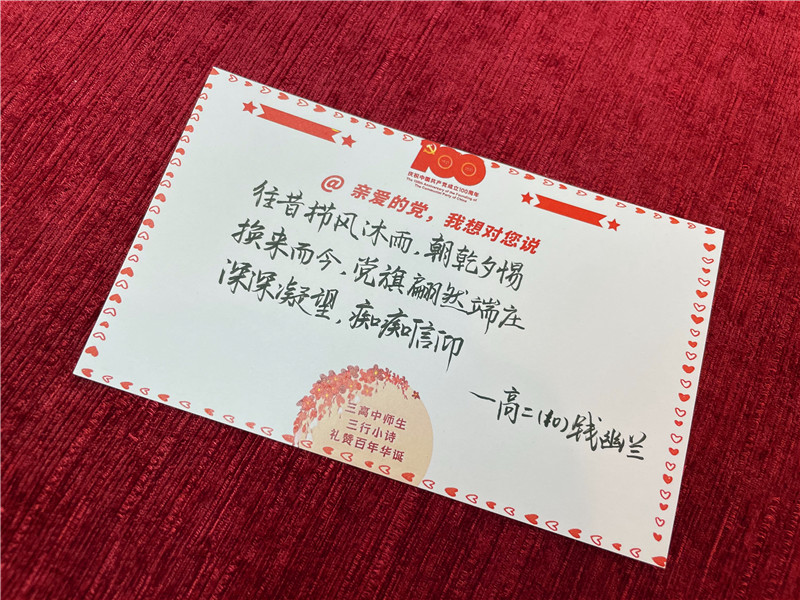 100
庆祝中国共产党成立100周年
The 100th Anniversary of the Founding of
The Communist Party of China
@ 亲爱的党，我想对您说
往昔栉风沐雨，朝乾夕惕
换来而今，党旗翩然端庄
深深凝望，痴痴信仰
一高二(10)钱幽兰
三高中师生
三行小诗
礼赞百年华诞